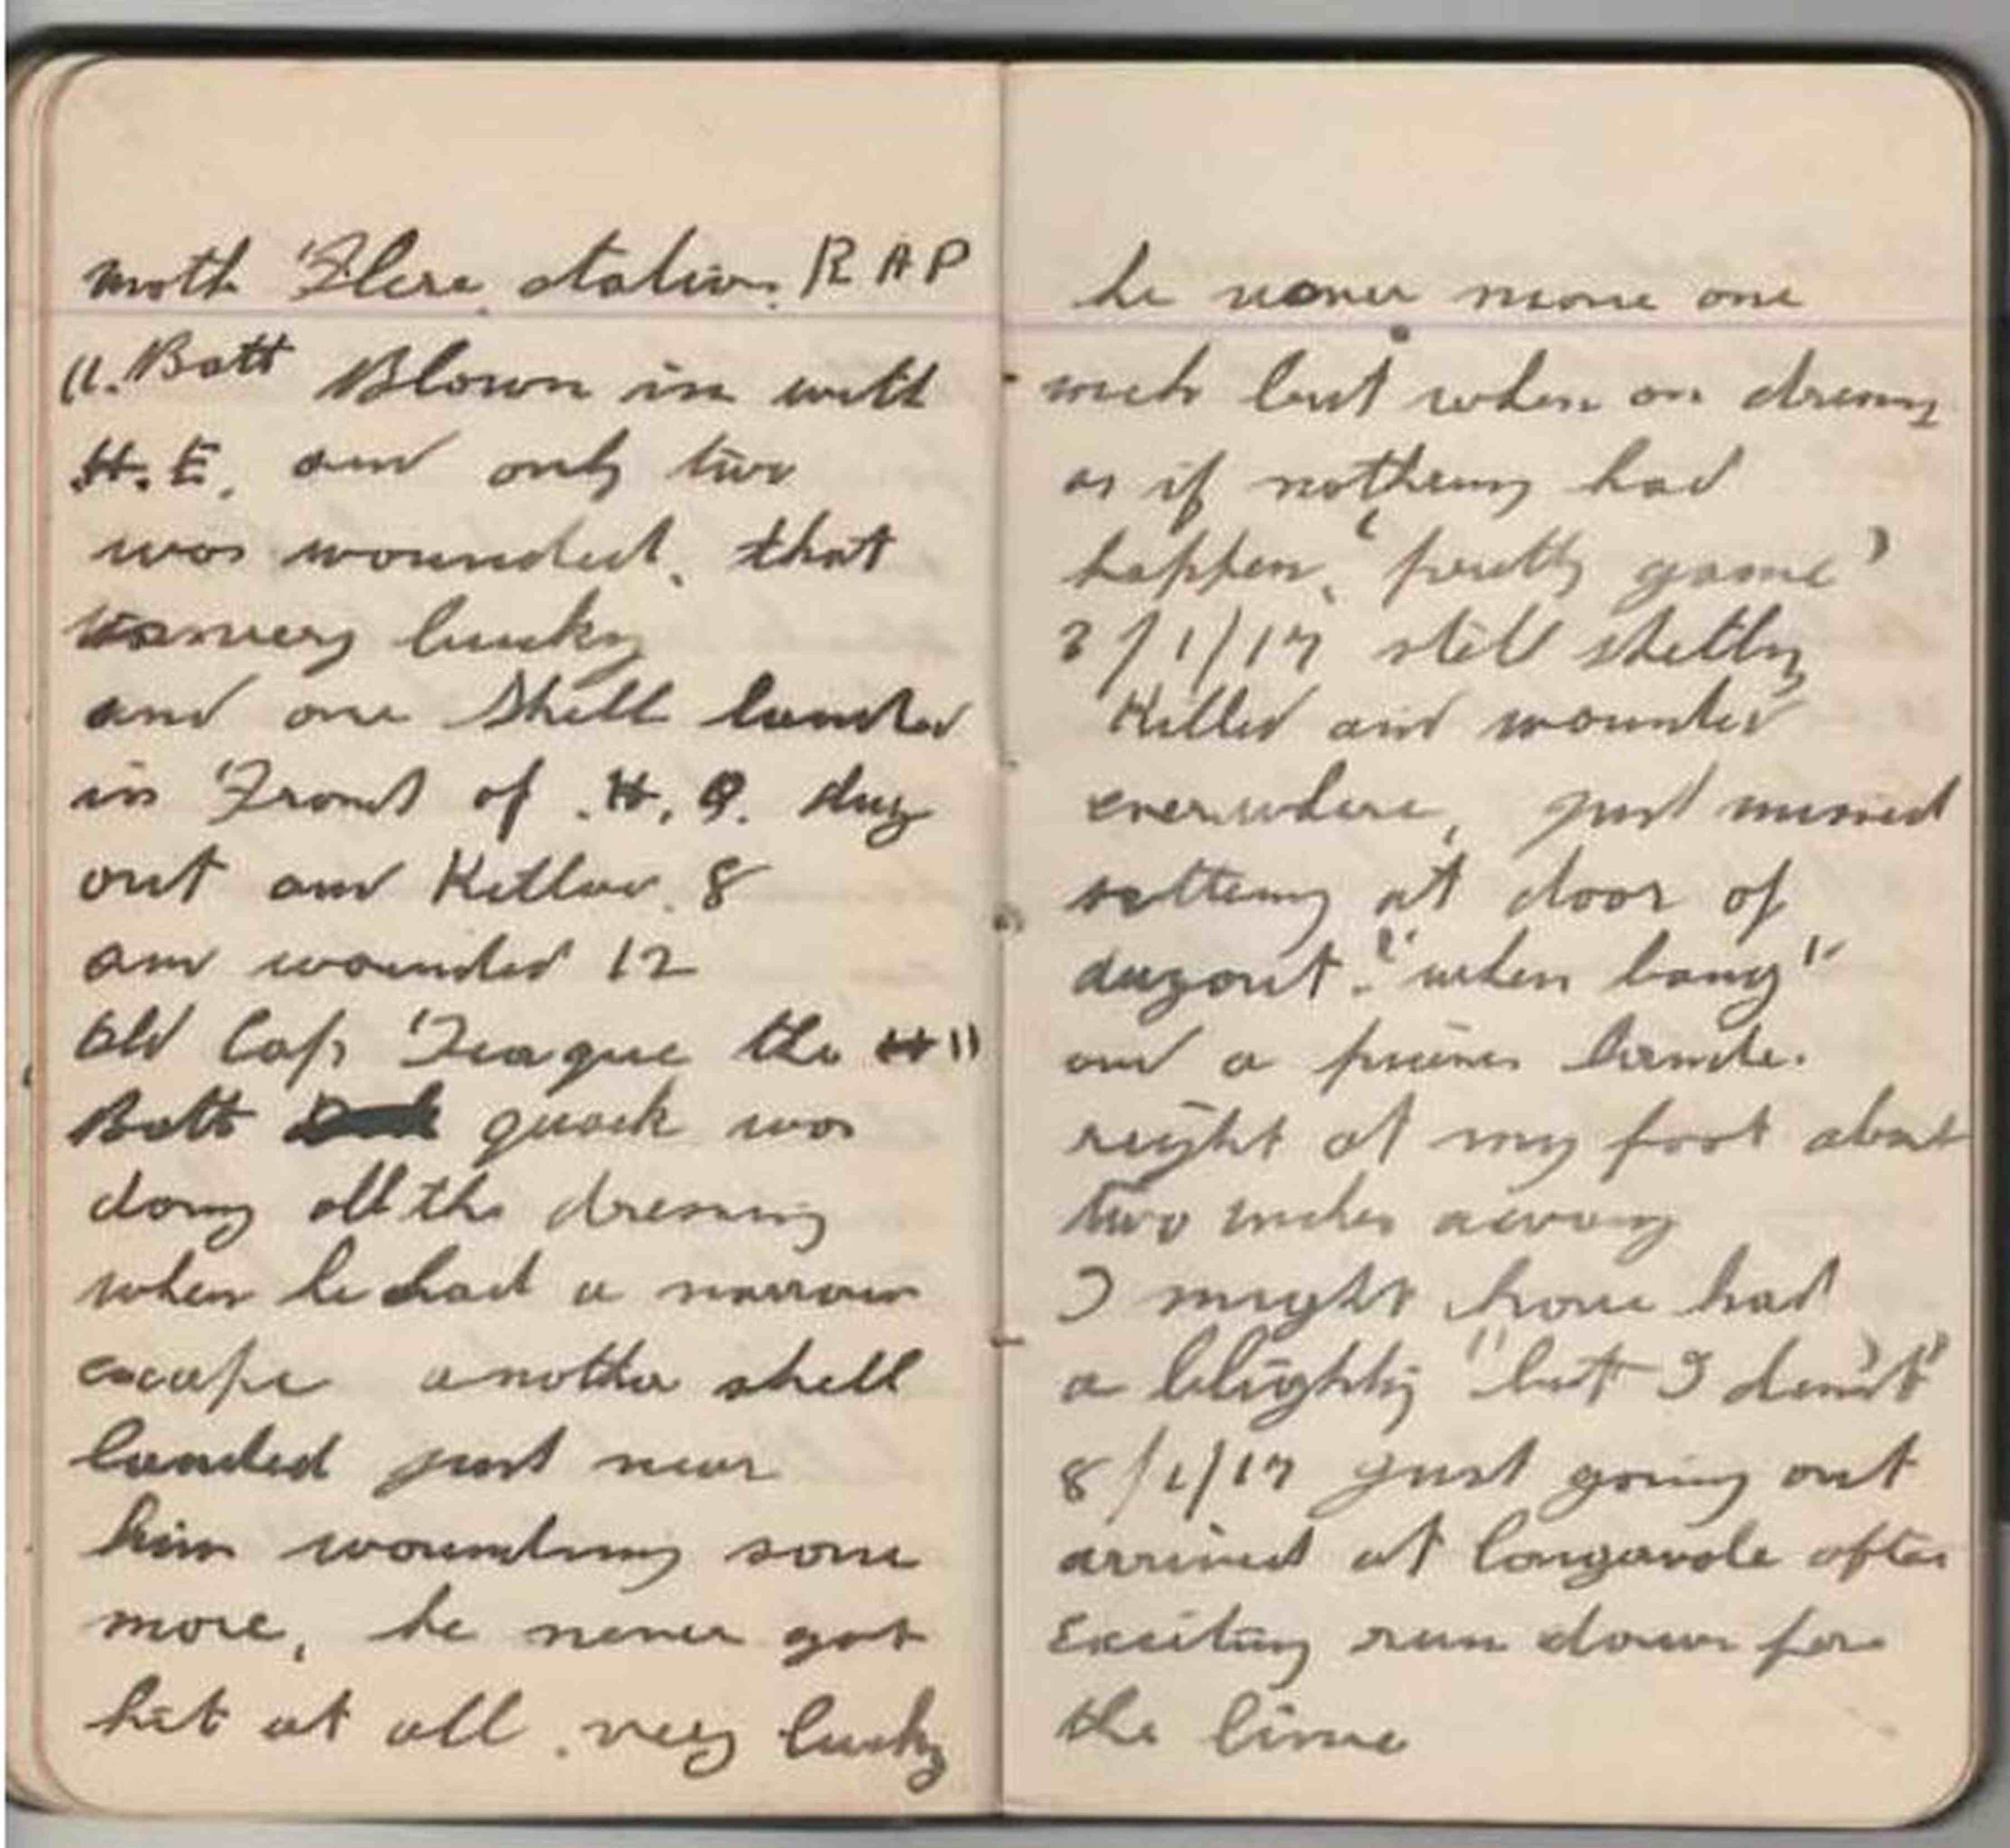 moth Flers station. R A P
11. Batt Blown in with
H. E. and only two
was wounded. that
very lucky
and one Shell landed
in Front of .H. Q. dug
out and Killed. 8
and wounded 12
Old Cap Teague the 11
Batt quack was
doing all the dressing
when he had a narrow
escape another shell
landed just near
him wounding some
more, he never got
hit at all. very lucky
he never move one
inch but when on dressing
as if nothing had
happen. "pretty game"
/1/17 still shelling
Killed and wounded
everwhere, just missed
sitting at door of
dugout. "when bang"
and a piece lande.
right at my foot about
two inches away
I might have had
a blighty "but I don't"
8/1/17 just going out
arrived at Longavale after
Exciting run down for
the line